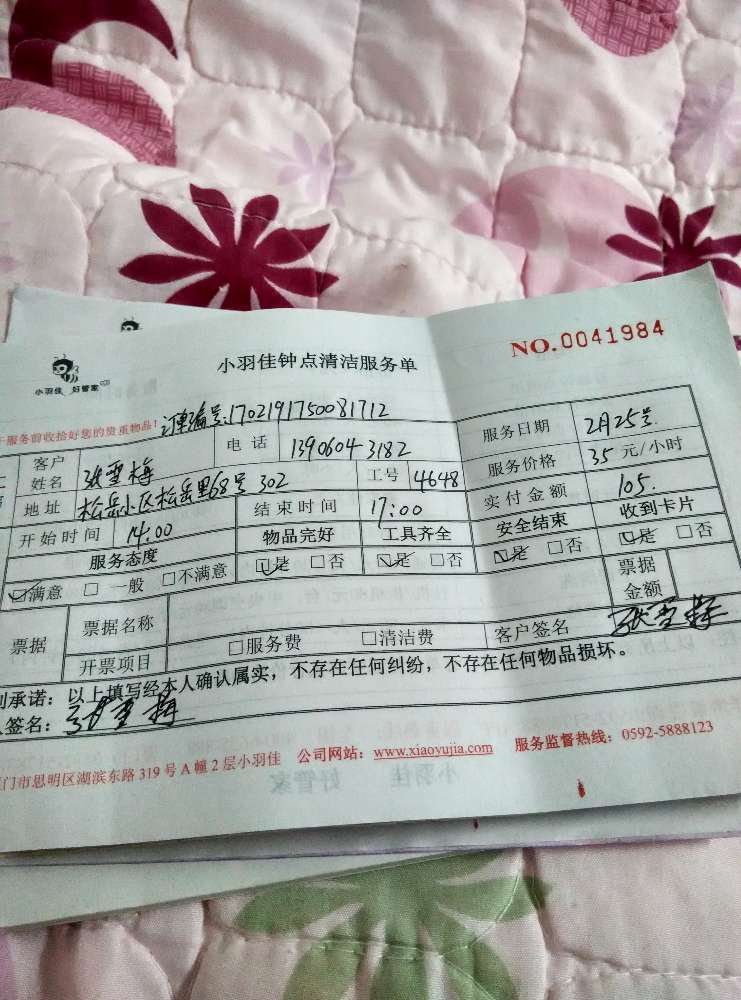 NO.0041984
小羽佳钟点清洁服务单
小羽佳 好管家
服务前收拾好您的贵重物品！ 订单编号:1702191750081712
客户姓名 张雪梅 电话 13906043182 服务日期 2月25号
地址 松岳小区松岳里68号302 工号 4648 服务价格 35元/小时
开始时间 14:00 结束时间 17:00 实付金额 105.
服务态度 物品完好 工具齐全 安全结束 收到卡片
☑满意 □一般 □不满意 ☑是 □否 ☑是 □否 ☑是 □否 ☑是 □否
票据 票据名称 票据金额
开票项目 □服务费 □清洁费 客户签名 张雪梅
承诺：以上填写经本人确认属实，不存在任何纠纷，不存在任何物品损坏。
签名：张雪梅
门市思明区湖滨东路319号A幢2层小羽佳 公司网站：www.xiaoyujia.com 服务监督热线：0592-5888123